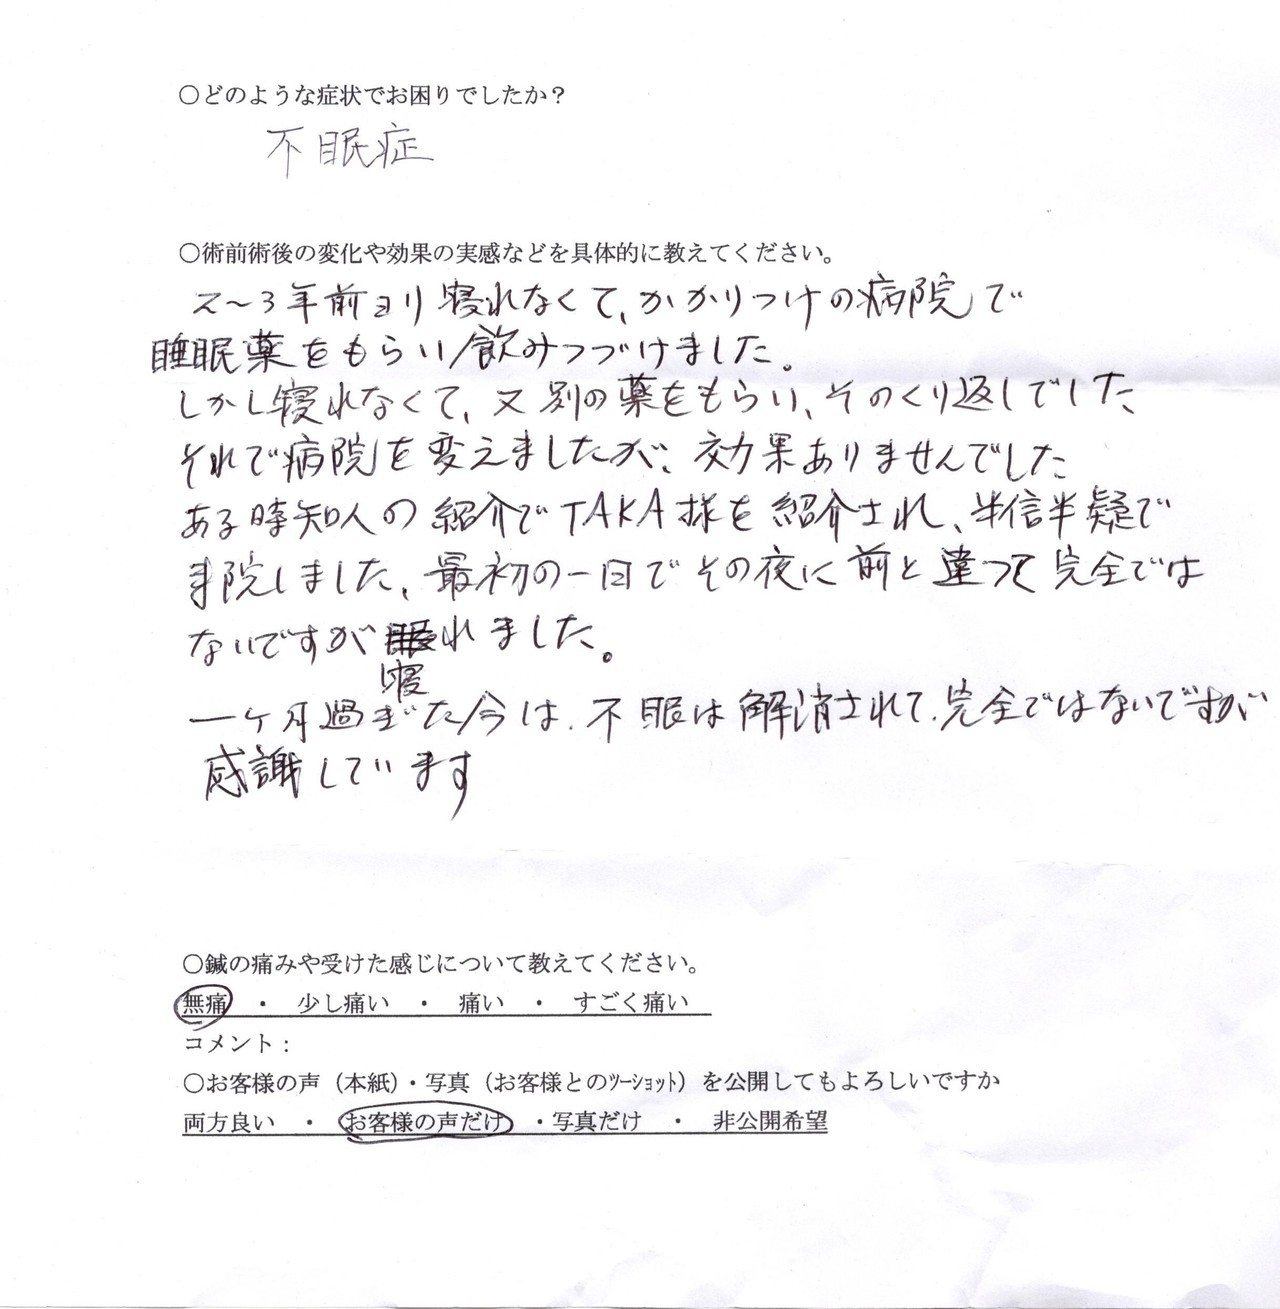 ○どのような症状でお困りでしたか？
不眠症
○術前術後の変化や効果の実感などを具体的に教えてください。
2〜3年前ヨリ寝れなくて、かかりつけの病院で
睡眠薬をもらい飲みつづけました。
しかし寝れなくて、又別の薬をもらい、そのくり返しでした
それで病院を変えましたが、効果ありませんでした
ある時知人の紹介でTAKA様を紹介され、半信半疑で
来院しました、最初の一日でその夜に前と違って完全では
ないですが寝れました。
一ヶ月過ぎた今は、不眠は解消されて、完全ではないですが
感謝しています
○鍼の痛みや受けた感じについて教えてください。
無痛　・　少し痛い　・　痛い　・　すごく痛い
コメント：
○お客様の声（本紙）・写真（お客様とのﾂｰｼｮｯﾄ）を公開してもよろしいですか
両方良い　・　お客様の声だけ　・写真だけ　・　非公開希望